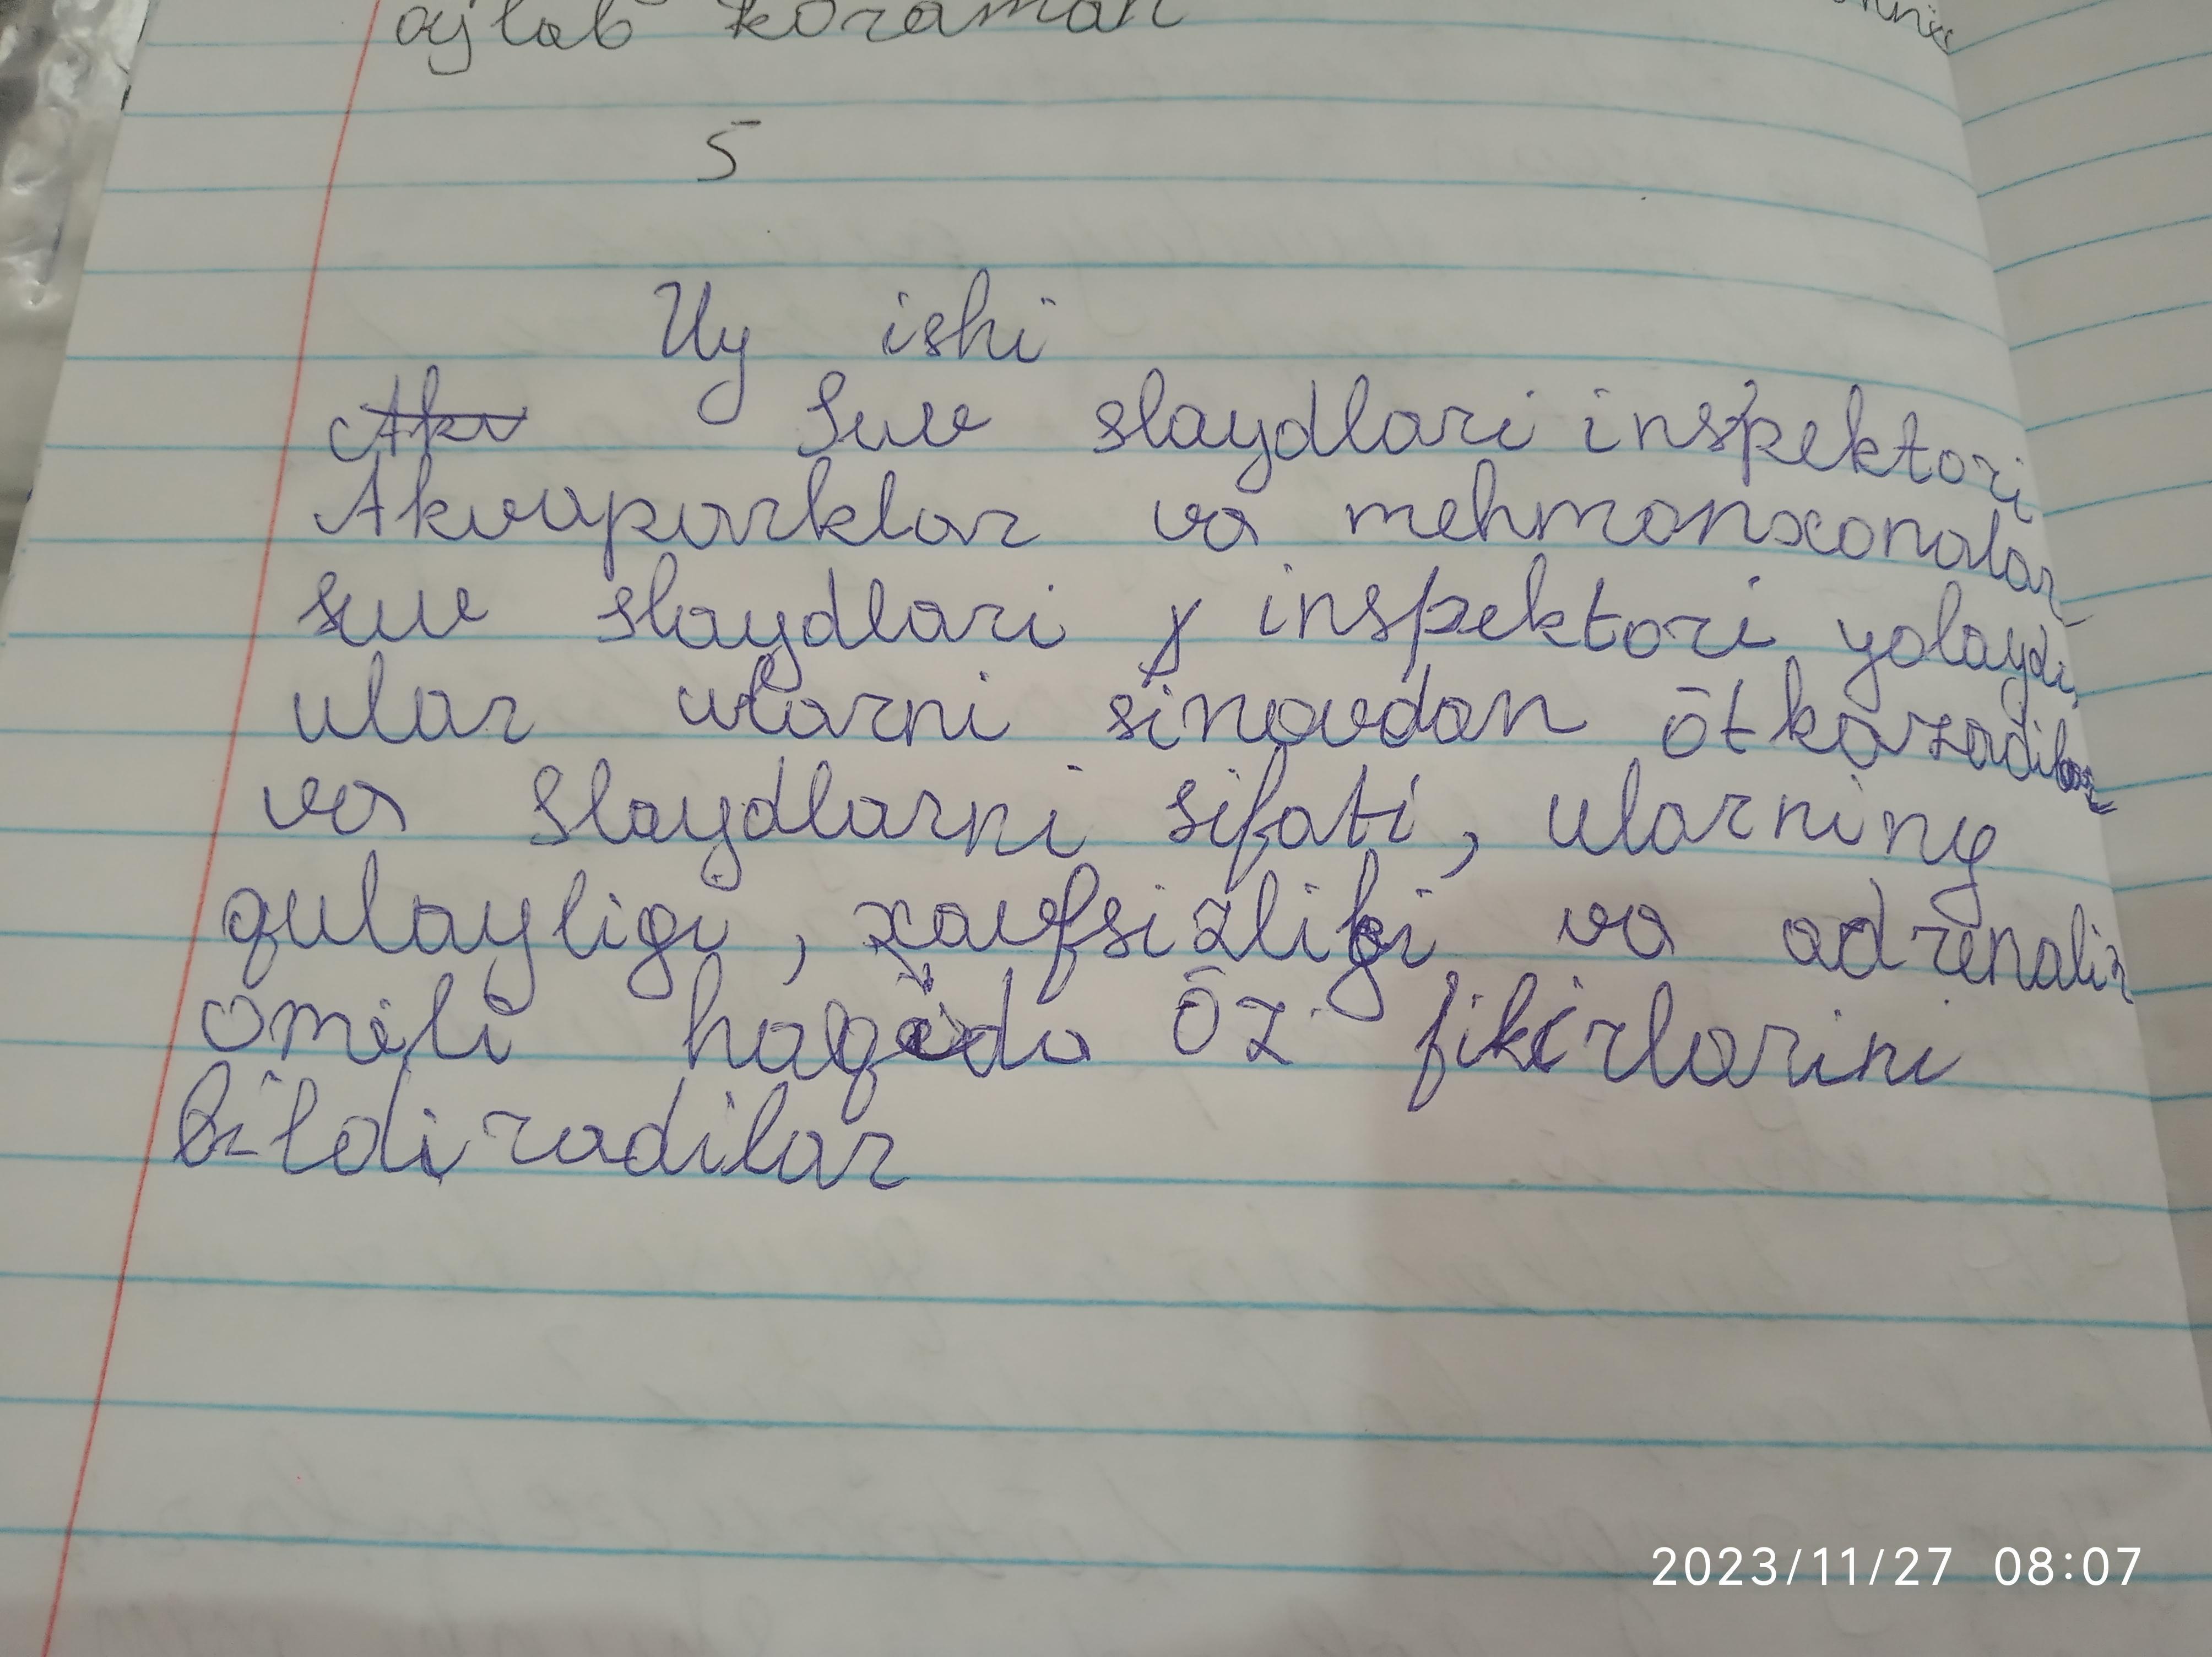 oylab koraman
5
Uy ishi
Akv Suv slaydlari inspektori
Akvaparklar va mehmonxonalar
suv slaydlari y inspektori yolaydi,
ular ularni sinovdan ōtkazadilar
va slaydlarni sifati, ularning
qulayligi, xavfsizligi va adrenalin
omili haqida ōz fikirlarini
bildiradilar
2023/11/27 08:07